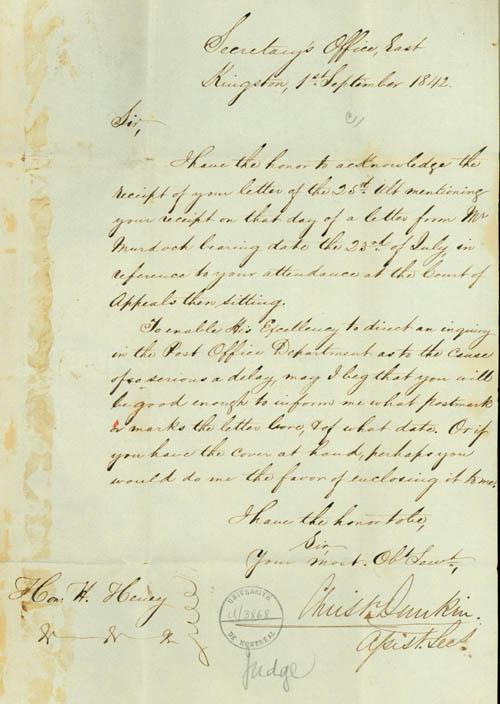 Secretary's Office, East
Kingston, 1st September 1842.
Sir,
I have the honor to acknowledge the
receipt of your letter of the 25th Ult mentioning
your receipt on that day of a letter from Mr
Murdock bearing date the 23rd of July, in
reference to your attendance at the Court of
Appeals then sitting.
To enable His Excellency to direct an inquiry
in the Post Office Department as to the cause
of so serious a delay, may I beg that you will
be good enough to inform me what postmark
or marks the letter bore, & of what date. Or if
you have the cover at hand, perhaps you
would do me the favor of enclosing it to me.
I have the honor to be,
Sir,
Your most Obt Servt,
Christr Dunkin.
Assist. Secy.
Hon. H. Heney
&c &c &c
UNIVERSITÉ DE MONTRÉAL
U/3868
Judge